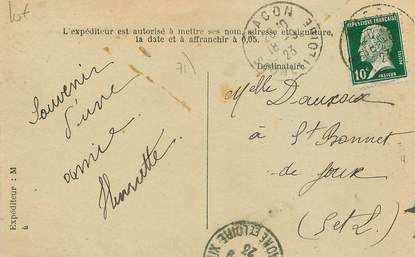 L'expéditeur est autorisé à mettre ses nom, adresse et signature,
la date et à affranchir à 0,05.
Destinataire
71
Souvenir
d'une
amie
Henriette
Mlle Dauxois
à St Bonnet
de Joux
(S et L.)
Expéditeur : M
à
RÉPUBLIQUE FRANÇAISE
10c
POSTES
MACON
18
23
SAONE ET LOIRE